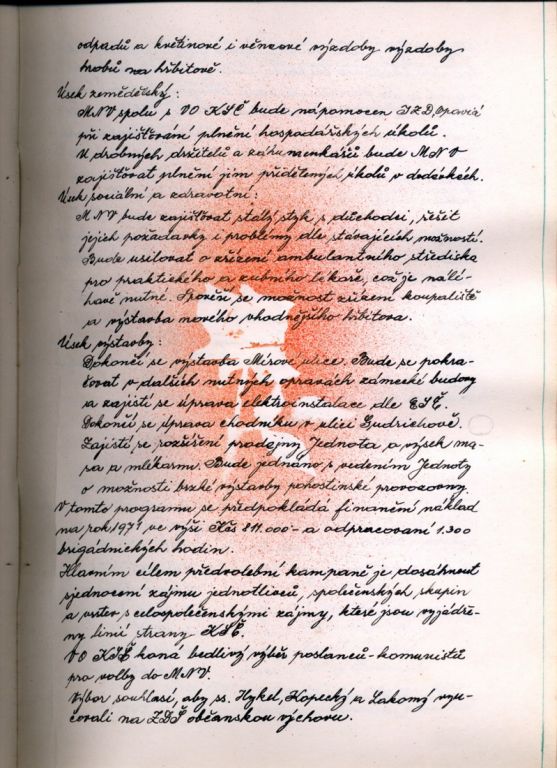 odpadů a květinové i věncové výzdoby výzdoby
hrobů na hřbitově.
Úsek zemědělský:
MNV spolu s VO KSČ bude nápomocen JZD Opavia
při zajišťování plnění hospodářských úkolů.
U drobných držitelů a záhumenkářů bude MNV
zajišťovat plnění jim přidělených úkolů v dodávkách.
Úsek sociální a zdravotní:
MNV bude zajišťovat stálý styk s důchodci, řešit
jejich požadavky i problémy dle stávajících možností.
Bude usilovat o zřízení ambulantního střediska
pro praktického a zubního lékaře, což je nalé-
havě nutné. se možnost zřízení koupaliště
a výstavba nového vhodnějšího hřbitova.
Úsek výstavby:
Dokončí se výstavba Mírové ulice. Bude se pokra-
čovat v dalších nutných opravách zámecké budovy
a zajistí se úprava elektroinstalace dle
Dokončí se úprava chodníku v ulici Gudrichově.
Zajistí se rozšíření prodejny Jednota a výsek ma-
sa a mlékárni. Bude jednáno s vedením Jednoty
o možnosti brzké výstavby pohostinské provozovny.
V tomto programu se předpokládá finanční náklad
na rok 1971 ve výši Kčs 811.000- a odpracovaní 1.300
brigádnických hodin.
Hlavním cílem předvolební kampaně je dosáhnout
sjednocení zájmu jednotlivců, společenských skupin
a vrstev s celospolečenskými zájmy, které jsou vyjádře-
ny linií strany KSČ.
VO KSČ koná bedlivý výběr poslanců-komunistů
pro volby do MNV.
Výbor souhlasí, aby ss. Hykel, Kopecký a Lakomý vyu-
čovali na ZDŠ občanskou výchovu.